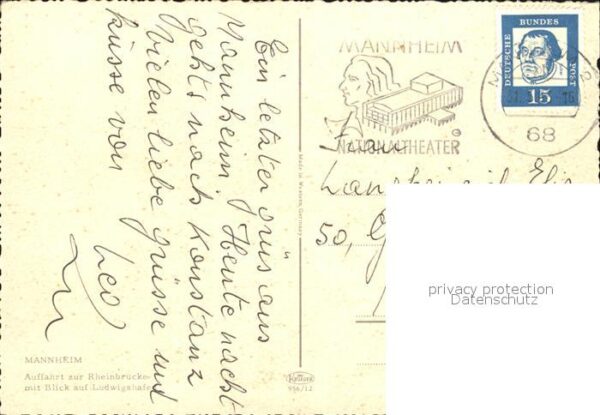 Ein letzter grüs aus
Mannheim. Heute nacht
gehts nach Konstanz
Vielen liebe grüsse und
küsse von
Leo
MANNHEIM
Auffahrt zur Rheinbrücke
mit Blick auf Ludwigshafe
Made in Western Germany
Krüger
956/12
MANNHEIM
NATIONALTHEATER
68
DEUTSCHE BUNDES POST
15
Frau
50,
privacy protection
Datenschutz